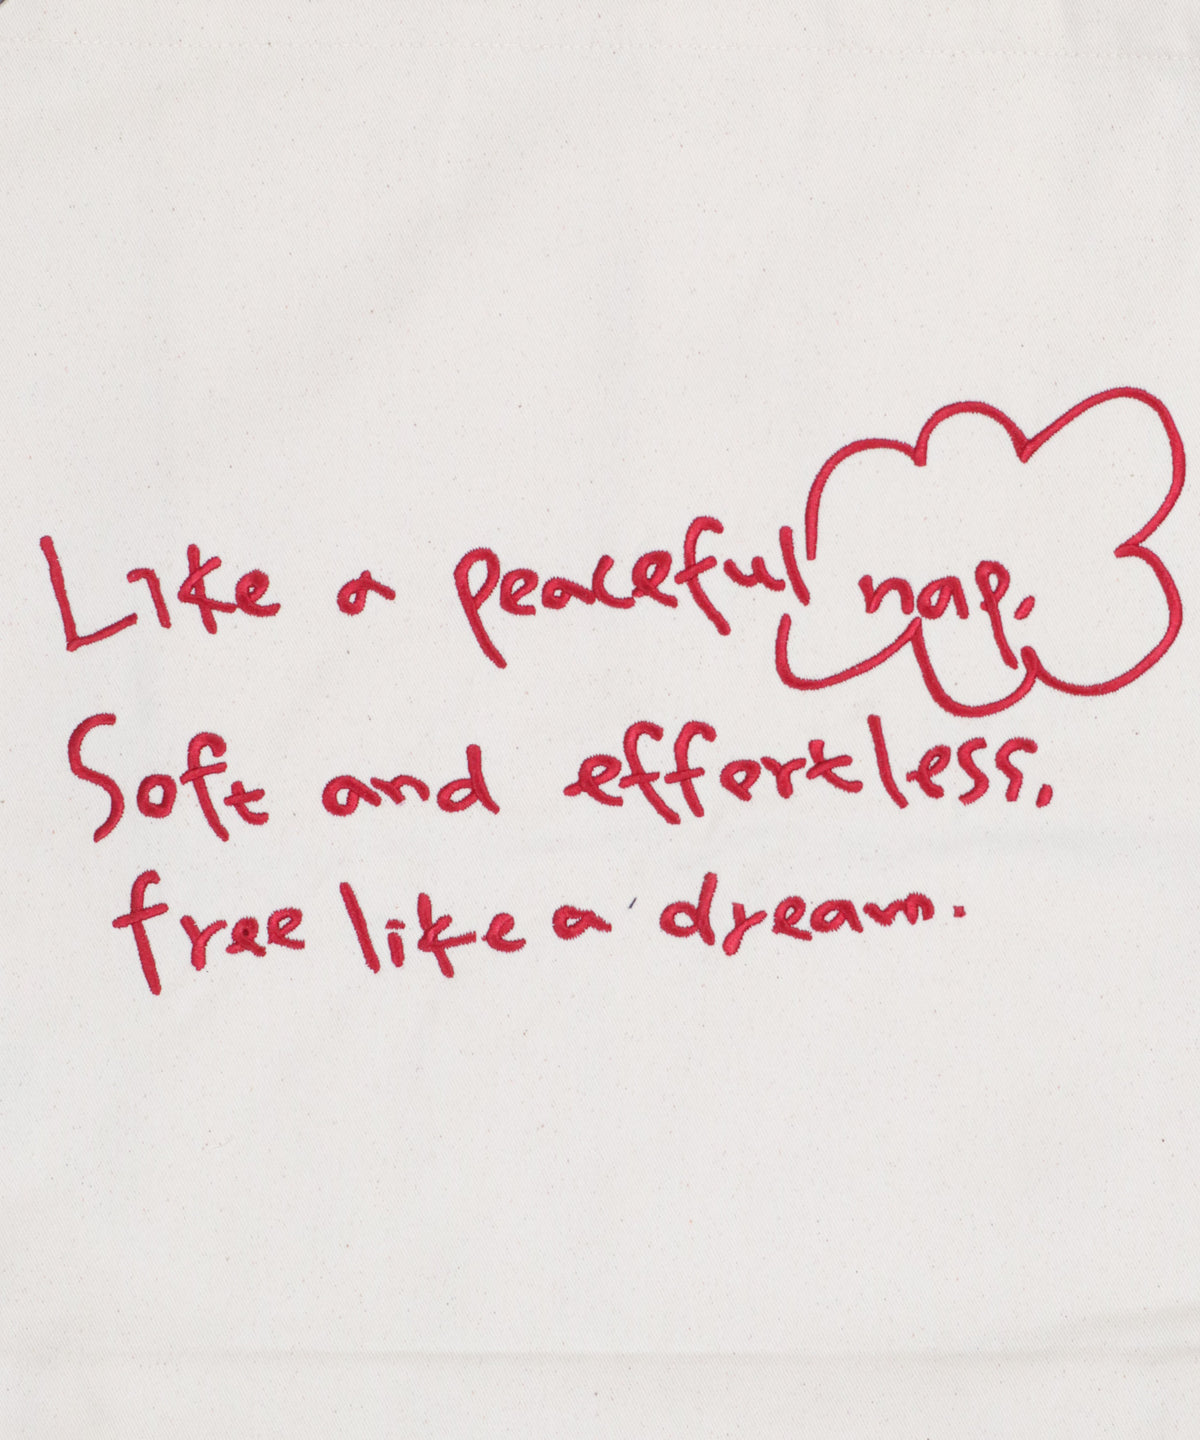 Like a peaceful nap.
Soft and effortless.
free like a dream.